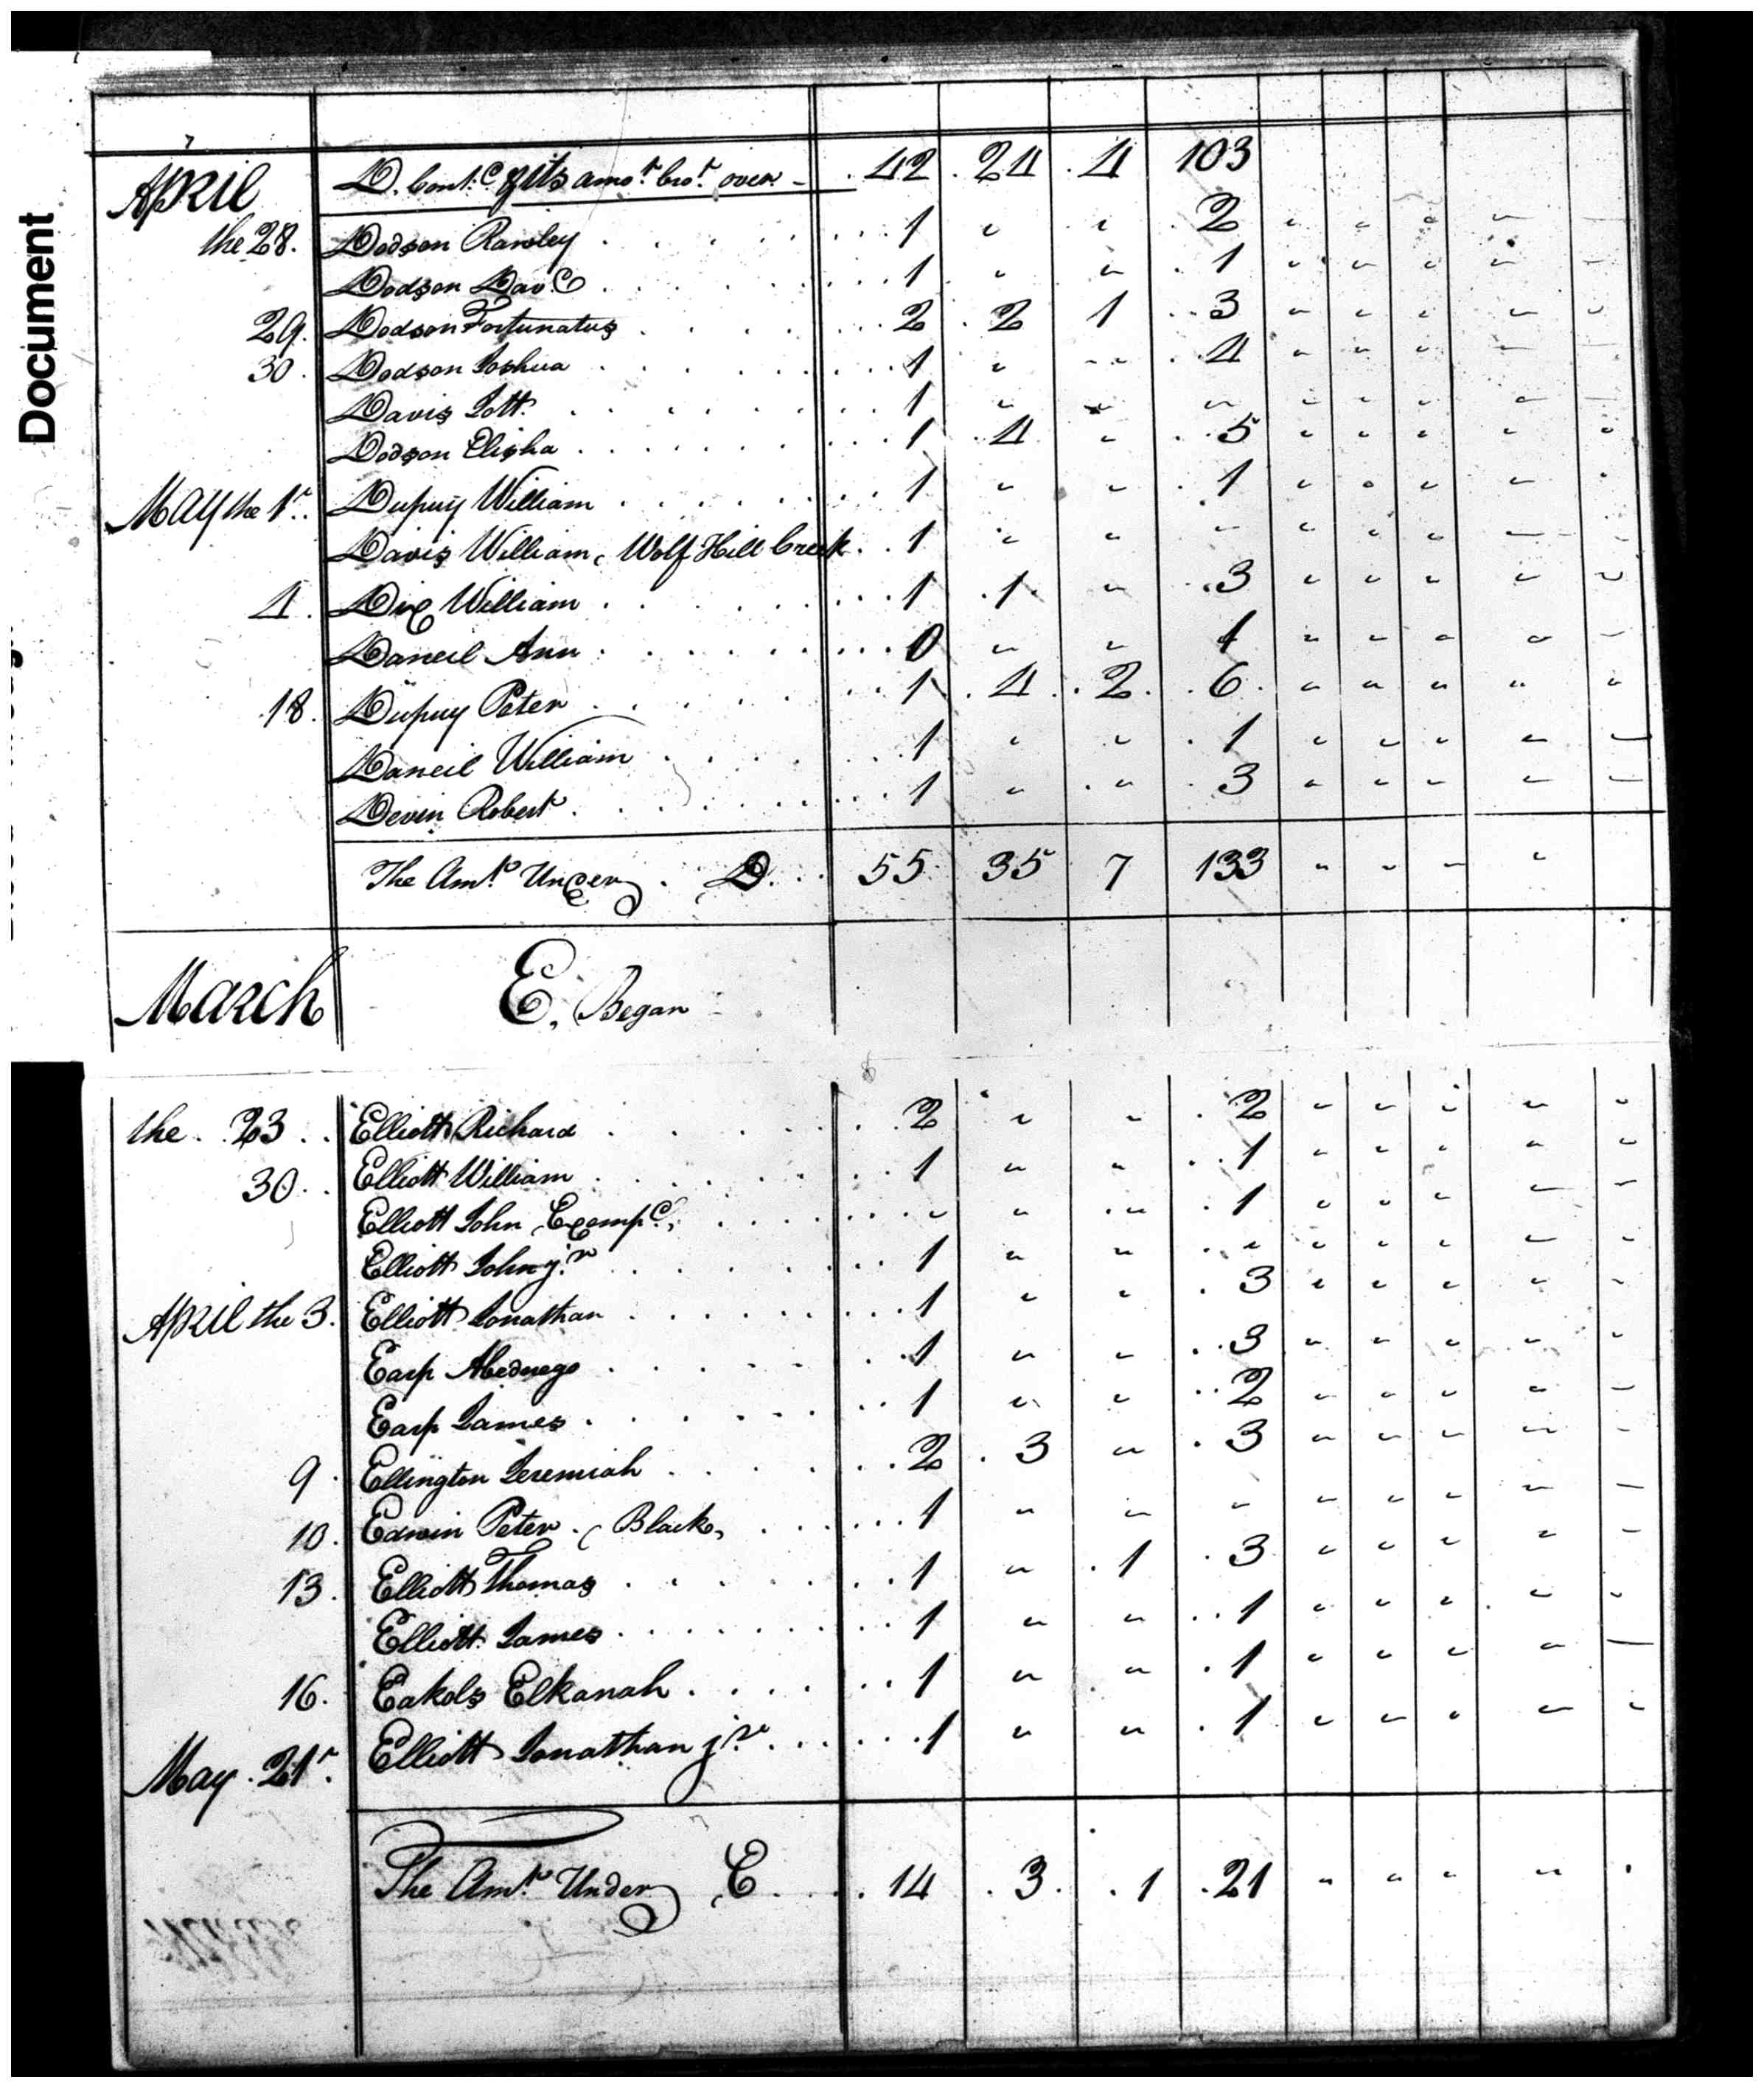 Document
April D. Cont.d & its amo.t bro.t over - 42 24 4 103
the 28. Dodson Rawley 1 " " 2 " " " " "
Dodson Dav.d 1 " " 1 " " " " "
29. Dodson Fortunatus 2 2 1 3 " " " " "
30. Dodson Joshua 1 " " 4 " " " " "
Davis Lott. 1 " " " " " " " "
Dodson Elisha 1 4 " 5 " " " " "
May the 1st. Dupuy William 1 " " 1 " " " " "
Davis William, Wolf Hill Creek 1 " " " " " " " "
4. Dix William 1 1 " 3 " " " " "
Daneil Ann 0 " " 1 " " " " "
18. Dupuy Peter 1 4 2 6 " " " " "
Daneil William 1 " " 1 " " " " "
Devin Robert 1 " " 3 " " " " "
The Am.t Under D. 55 35 7 133 " " " "
March E. Began
the 23 Elliott Richard 2 " " 2 " " " " "
30. Elliott William 1 " " 1 " " " " "
Elliott John Exemp.d, " " " 1 " " " " "
Elliott John j.r 1 " " " " " " " "
April the 3. Elliott Jonathan 1 " " 3 " " " " "
Earp Abednego 1 " " 3 " " " " "
Earp James 1 " " 2 " " " " "
9. Ellington Jeremiah 2 3 " 3 " " " " "
10. Edwin Peter (Black, 1 " " " " " " " "
13. Elliott Thomas 1 " 1 3 " " " " "
Elliott James 1 " " 1 " " " " "
16. Eakols Elkanah 1 " " 1 " " " " "
May 21st. Elliott Jonathan j.r 1 " " 1 " " " " "
The Am.t Under E 14 3 1 21 " " " "